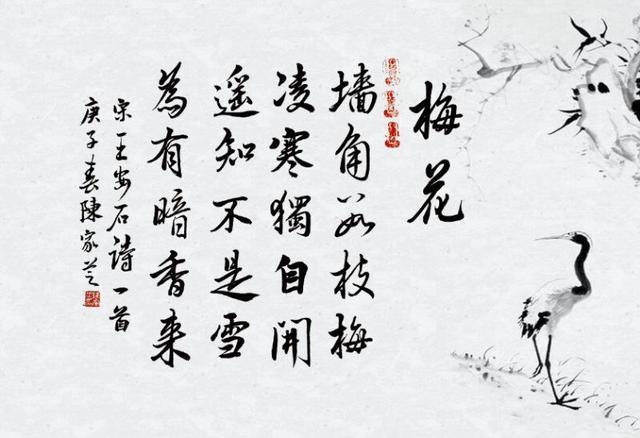 梅花
墙角数枝梅
凌寒獨自開
遥知不是雪
為有暗香来
宋王安石诗一首
庚子春陳家芝